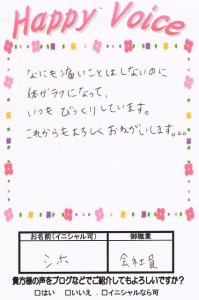 Happy Voice
なにも痛いことはしないのに
体がラクになって、
いつもびっくりしています。
これからもよろしくおねがいします。。。
お名前(イニシャル可) 御職業
シホ 会社員
貴方様の声をブログなどでご紹介してもよろしいですか？
□はい □いいえ . □イニシャルなら可